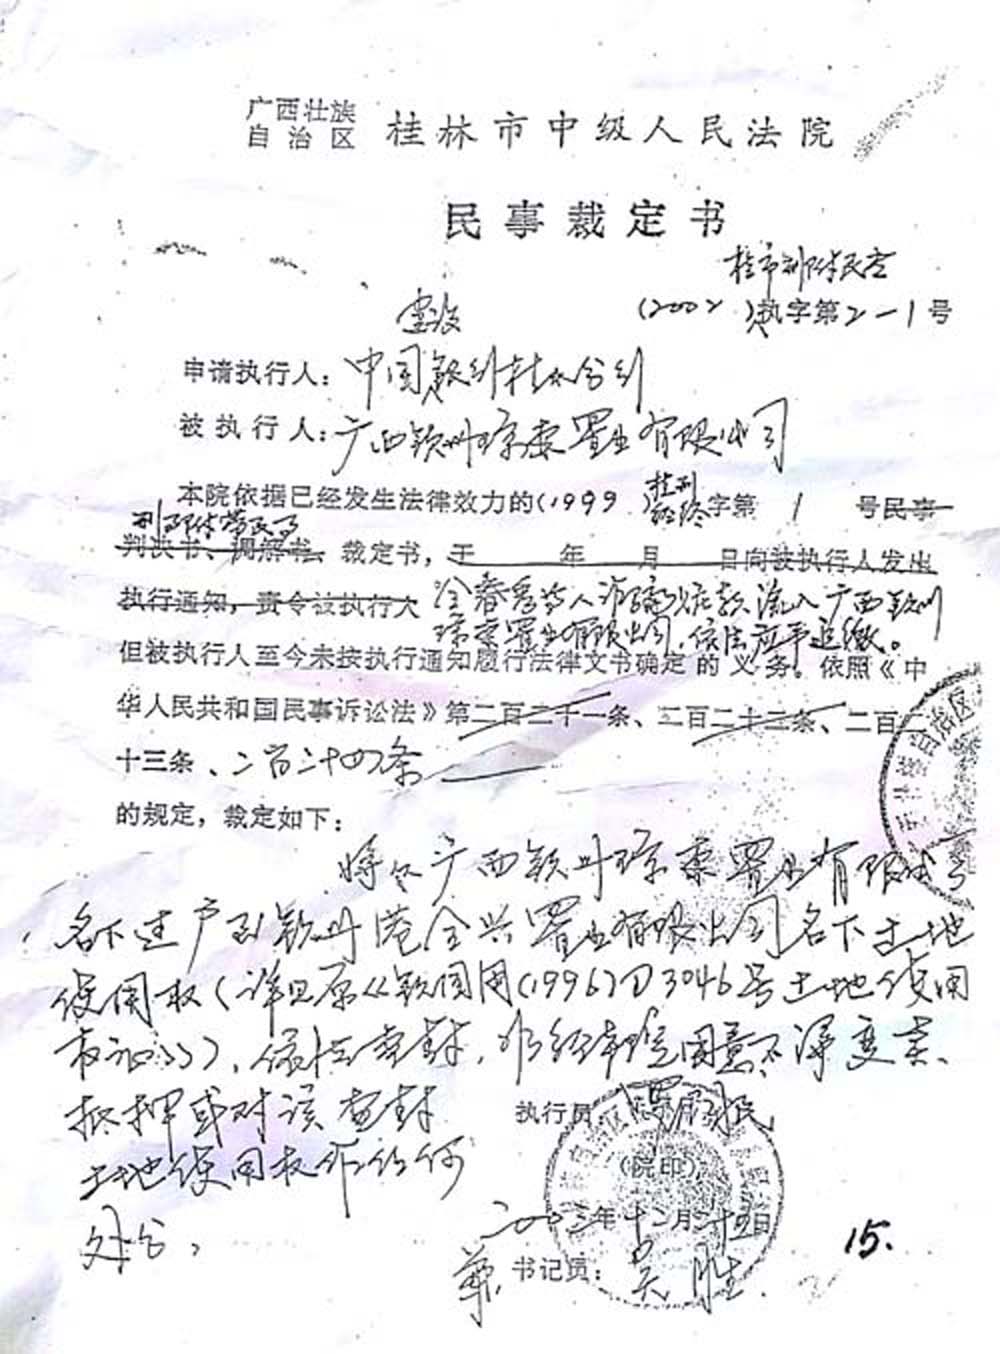 广西壮族
自治区 桂林市中级人民法院
民事裁定书
(2002)执字第2-1号
申请执行人：中国银行桂林分行
被执行人：广西钦州琼泰置业有限公司
本院依据已经发生法律效力的(1999)桂刑经终字第1号民事
判决书、调解书、裁定书，于 年 月 日向被执行人发出
执行通知，责令被执行人
等人诈骗赃款流入广西钦州
琼泰置业有限公司，依法应予追缴。
但被执行人至今未按执行通知履行法律文书确定的义务。依照《中
华人民共和国民事诉讼法》第二百二十一条、二百二十二条、二百二
十三条、二百二十四条
的规定，裁定如下：
将广西钦州琼泰置业有限公司
名下过户到钦州港金兴置业有限公司名下土地
使用权(详见原《钦国用(1996)D3046号土地使用
证》)，依法查封，非经本院同意不得变卖、
抵押或对该查封
土地使用权作任何
处分。
执行员
(院印)
二00三年十二月二十五日
书记员：吴胜
15.